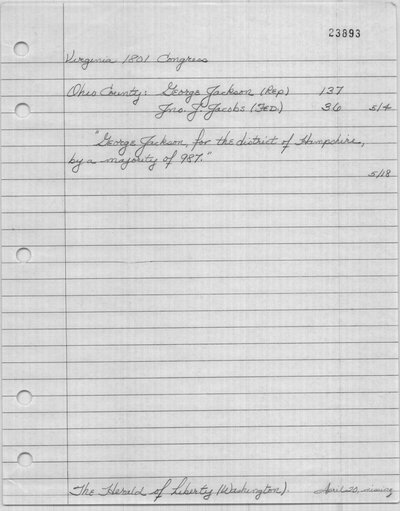 23893
Virginia 1801 Congress
Ohio County: George Jackson (Rep) 137
Jno. J. Jacobs (FED.) 36 5/4
"George Jackson, for the district of Hampshire,
by a majority of 987."
5/18
The Herald of Liberty (Washington). April 20, missing